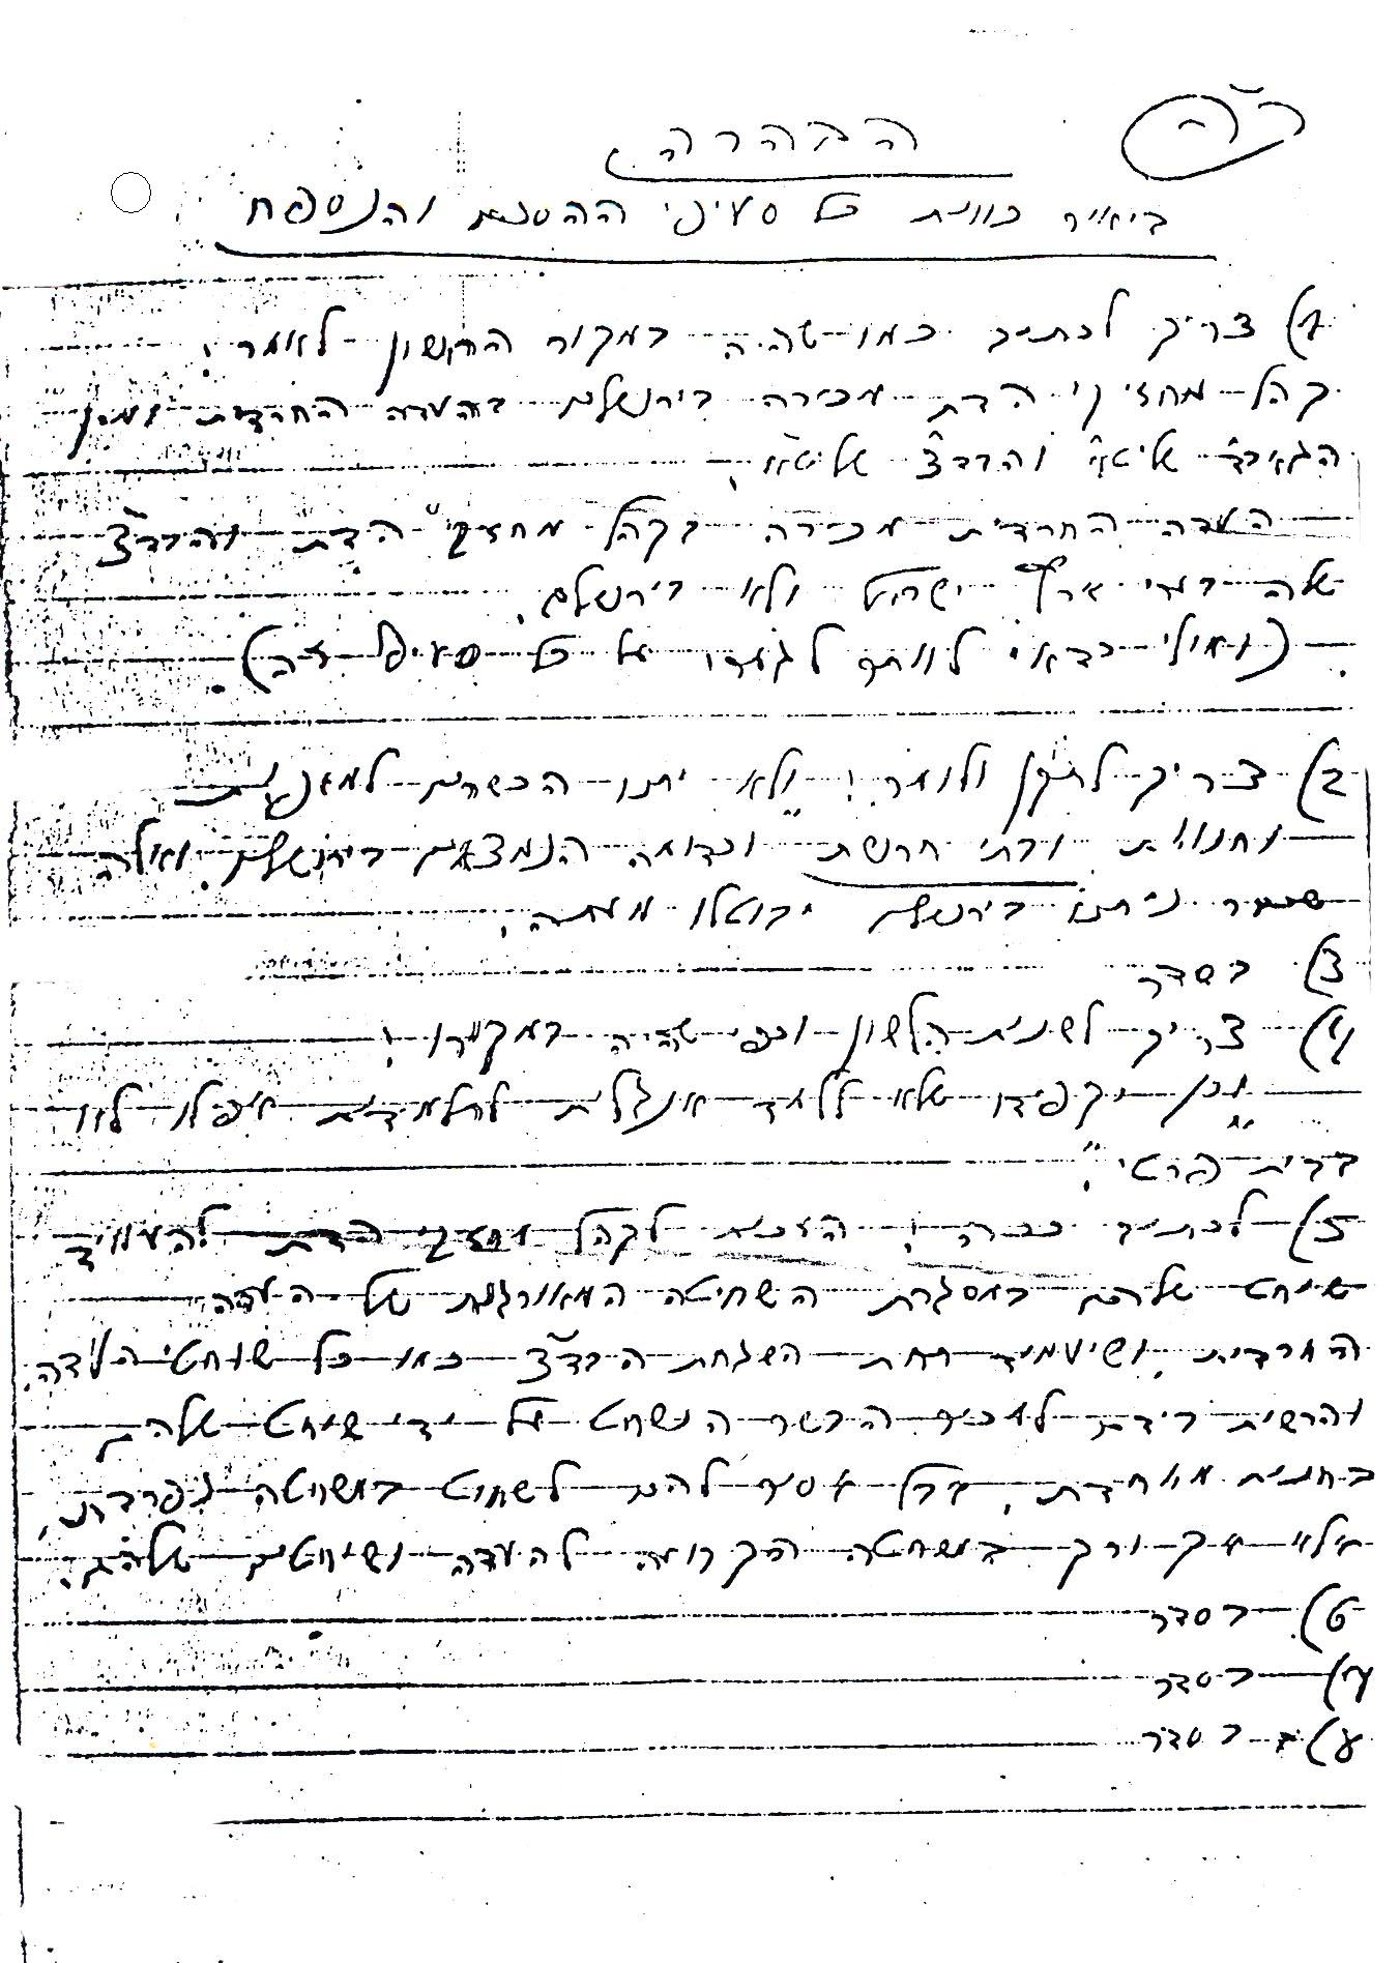 ב"ה
הבהרה
ביאור כוונת כל סעיפי ההסכם והנספח
1) צריך לכתוב כמו שהיה במקור הראשון לאמר:
קהל מחזיקי הדת מכירה בירושלים בהעדה החרדית ומרן
הגאב"ד שליט"א והבד"צ שליט"א,
העדה החרדית מכירה בקהל מחזיקי הדת והבד"צ
שלה בערי ארץ ישראל ולא בירושלים.
(ואולי כדאי לוותר לגמרי על כל סעיף זה).
2) צריך לתקן ולומר: "ולא יתנו הכשרים למאפיות
וחנויות ובתי חרושת וכדומה הנמצאים בירושלים ואלה
שכבר ניתנו בירושלים יבוטלו מעתה.
3) בסדר
4) צריך לשנות הלשון וכפי שהיה במקורו:
"וכן יקפידו שלא ללמד אנגלית לתלמידות אפילו לא
בבית פרטי".
5) לכתוב ככה: הזכות לקהל מחזיקי הדת להעמיד
שוחט שלהם במסגרת השחיטה המאורגנת של העדה
החרדית, ושיעמוד תחת השגחת הבד"צ כמו כל שוחטי העדה.
והרשות בידם למכור הבשר הנשחט על ידי שוחט שלהם
בחנות מיוחדת, אבל אסור להם לשחוט בשחיטה נפרדת,
אלא אך ורק בשחיטה הקרויה להעדה ושוחטים שלהם.
6) בסדר
7) בסדר
8) בסדר